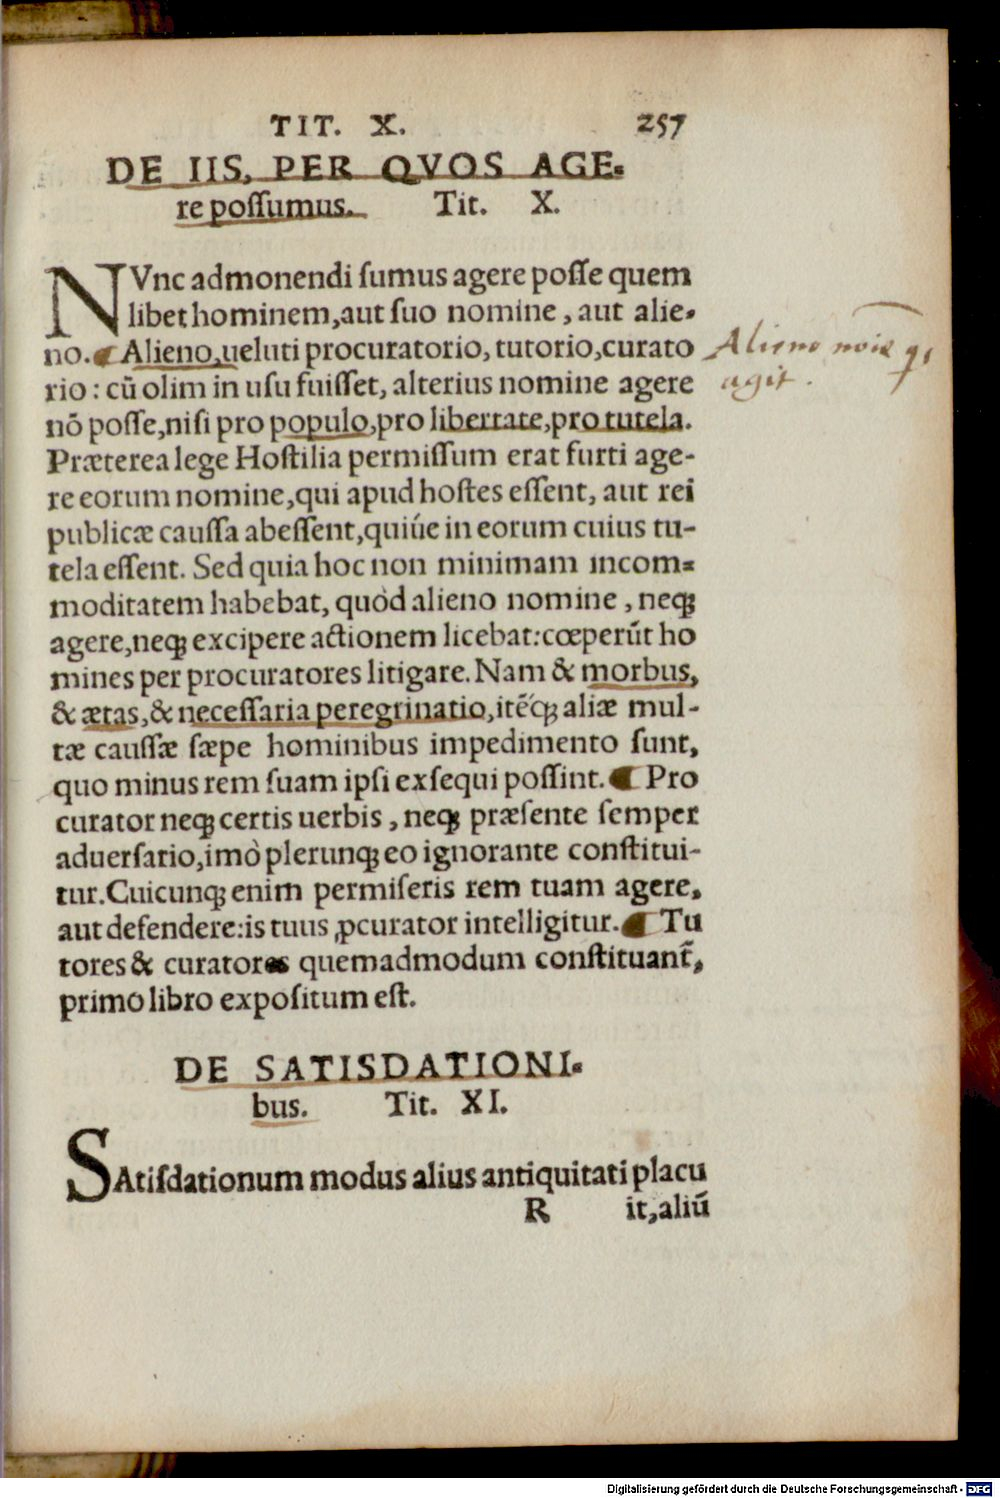 TIT. X. 257
DE IIS, PER QVOS AGE-
re poſſumus. Tit. X.
NVnc admonendi ſumus agere poſſe quem
libet hominem, aut ſuo nomine, aut alie-
no. ¶ Alieno, ueluti procuratorio, tutorio, curato
rio: cū olim in uſu fuiſſet, alterius nomine agere
nō poſſe, niſi pro populo, pro libertate, pro tutela.
Præterea lege Hoſtilia permiſſum erat furti age-
re eorum nomine, qui apud hoſtes eſſent, aut rei
publicæ cauſſa abeſſent, quiúe in eorum cuius tu-
tela eſſent. Sed quia hoc non minimam incom-
moditatem habebat, quòd alieno nomine, neqꝫ
agere, neqꝫ excipere actionem licebat: cœperūt ho
mines per procuratores litigare. Nam & morbus,
& ætas, & neceſſaria peregrinatio, itēqꝫ aliæ mul-
tæ cauſſæ ſæpe hominibus impedimento ſunt,
quo minus rem ſuam ipſi exſequi poſſint. ¶ Pro
curator neqꝫ certis uerbis, neqꝫ præſente ſemper
aduerſario, imò plerunqꝫ eo ignorante conſtitui-
tur. Cuicunqꝫ enim permiſeris rem tuam agere,
aut defendere: is tuus ꝓcurator intelligitur. ¶ Tu
tores & curatores quemadmodum conſtituant̄,
primo libro expoſitum eſt.
DE SATISDATIONI-
bus. Tit. XI.
SAtiſdationum modus alius antiquitati placu
R it, aliū
Alieno noīe
agit.
Digitalisierung gefördert durch die Deutsche Forschungsgemeinschaft - DFG